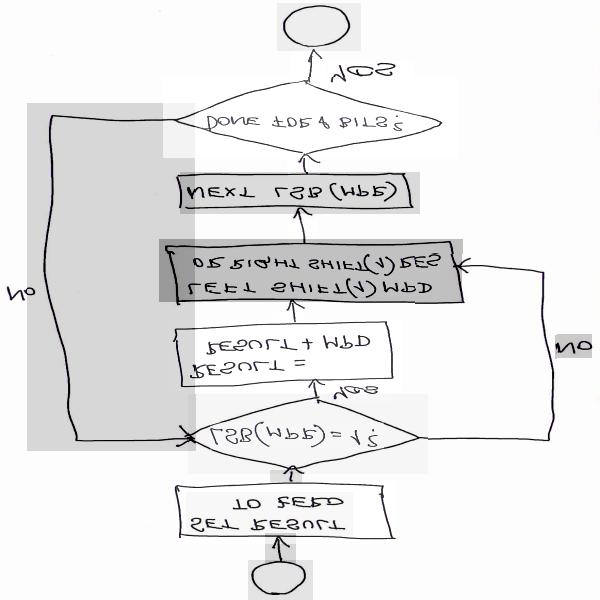 SET RESULT
TO ZERO
LSB(MPR) = 1?
Yes
NO
RESULT =
RESULT + MPD
LEFT SHIFT(1) MPD
OR RIGHT SHIFT(1) RES
NEXT LSB (MPR)
DONE FOR 4 BITS?
NO
YES